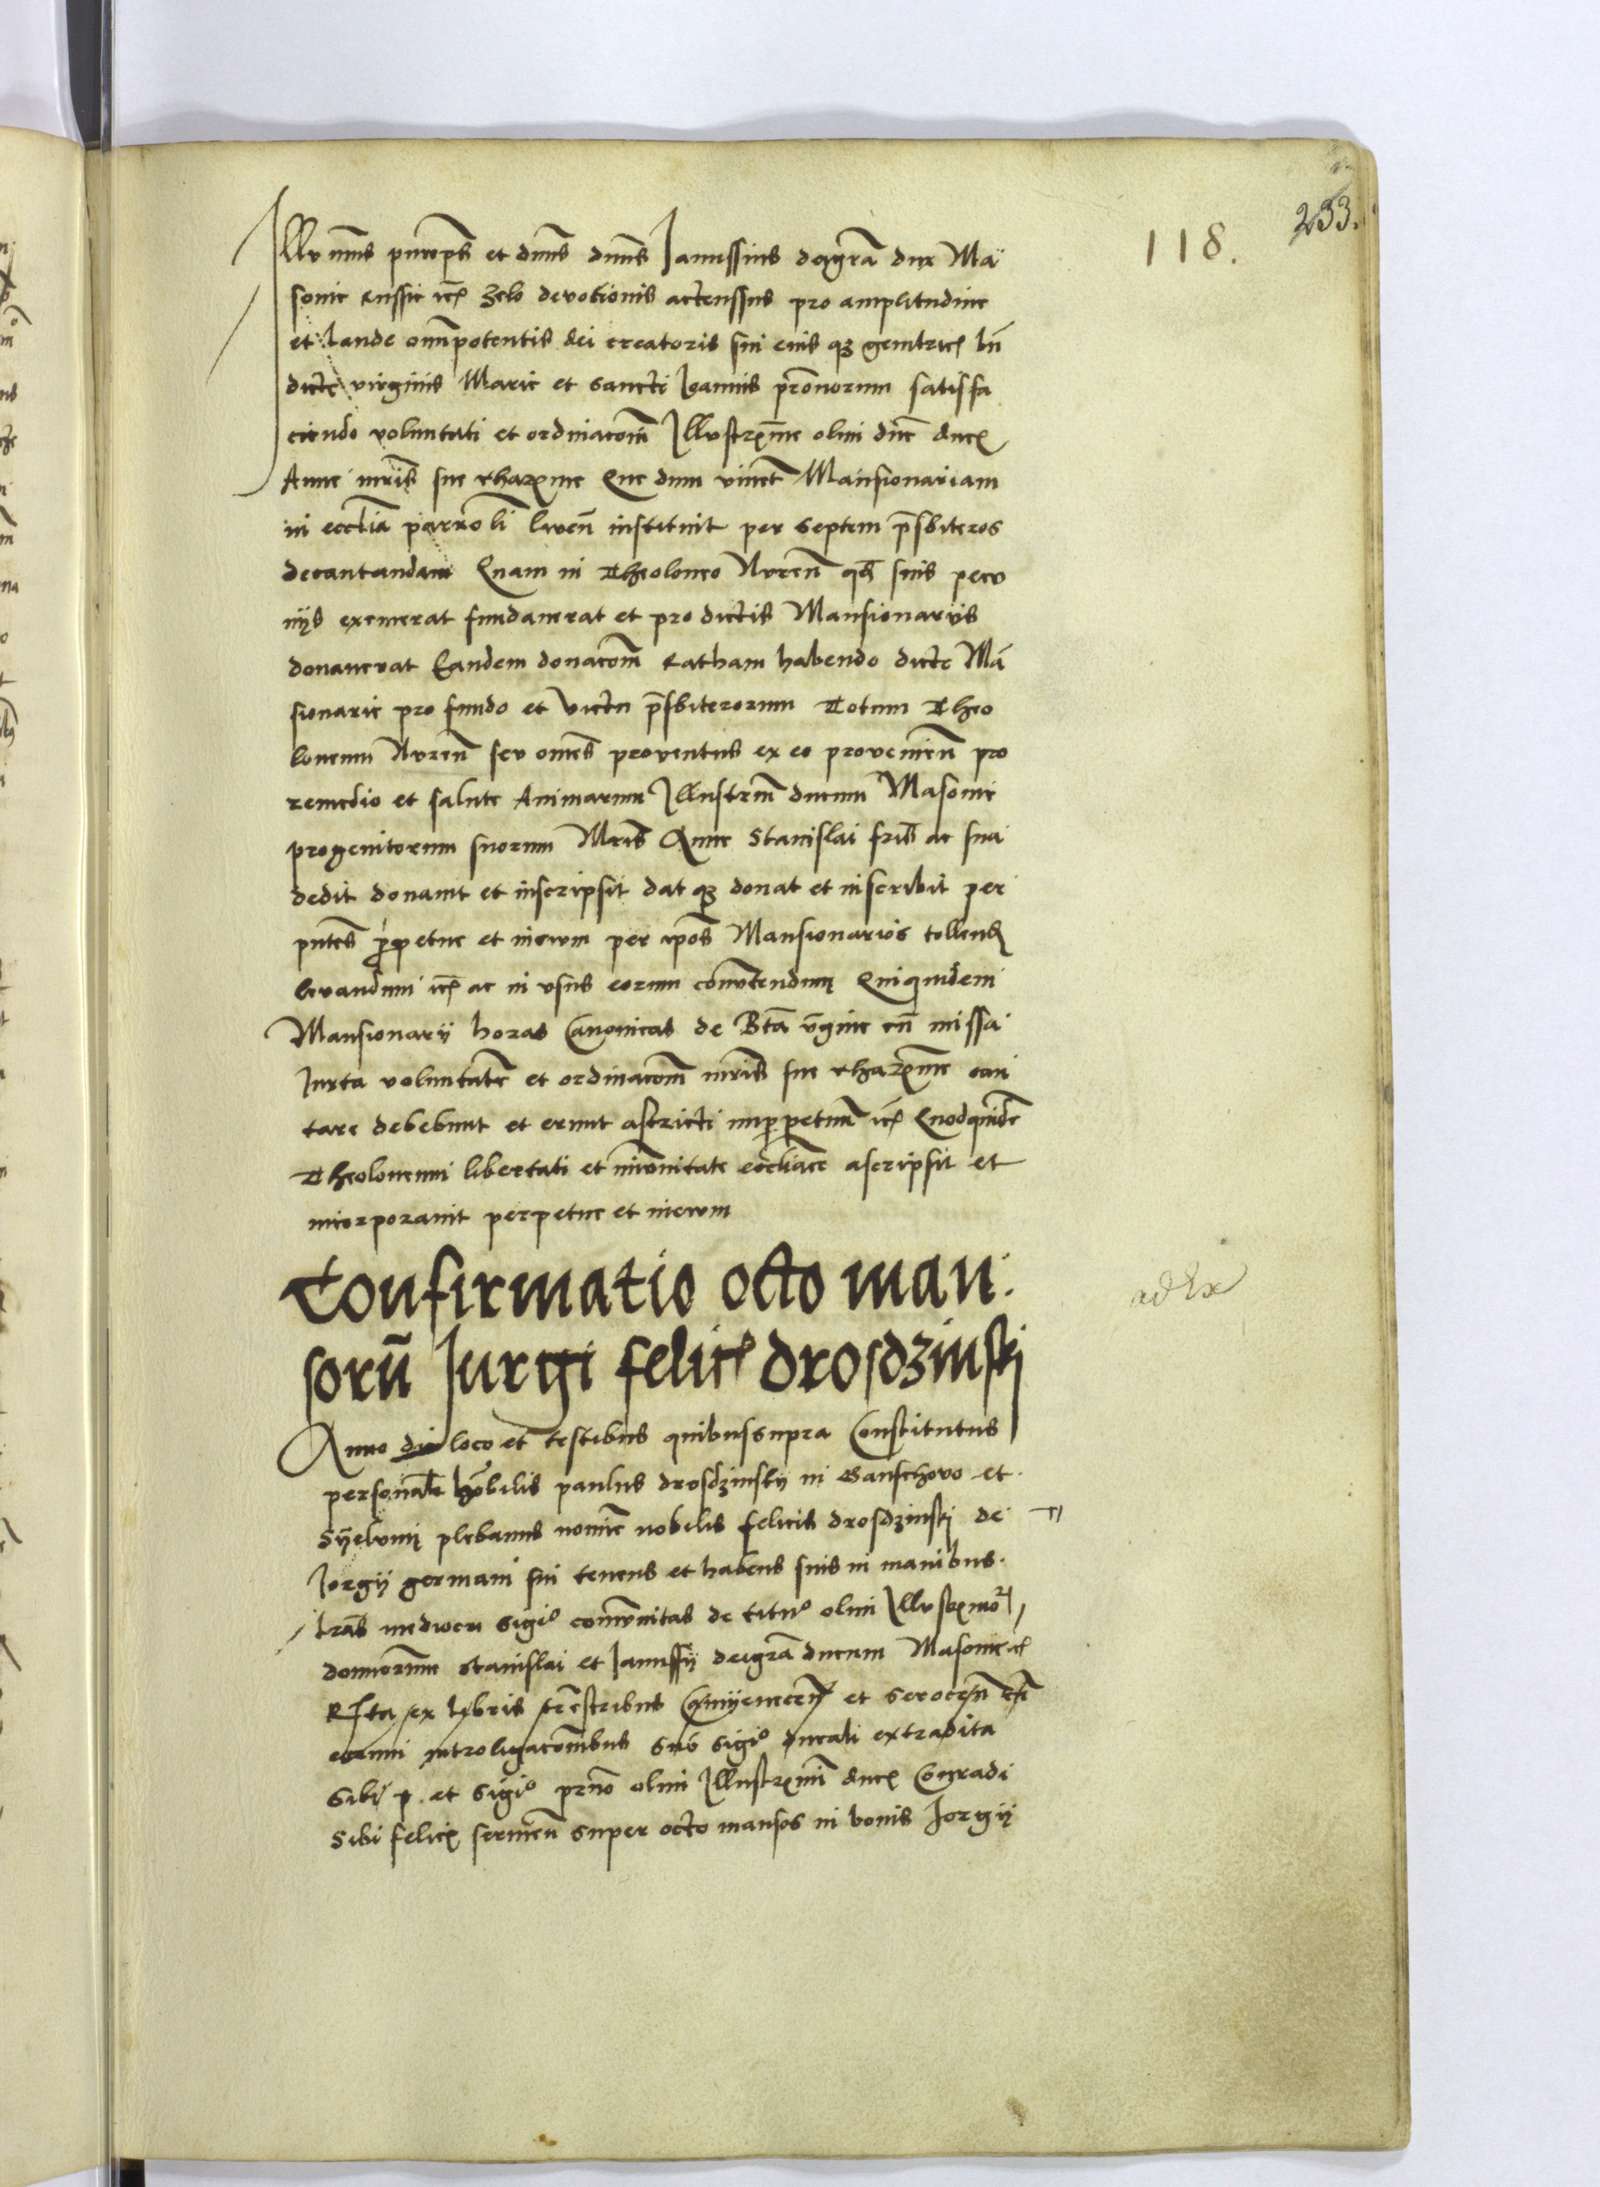 233.
118.
Illu nms princeps et dnns dnns Janussius deigra dux Ma
sovie Russie etc zelo devotionis accenssus pro amplitudine
et laude omnipotentis dei creatoris sui eius q3 genitricis bn
dicte virginis Marie et sancti Joannis pronorum satisfa
ciendo voluntati et ordinacom Illustrissime olim dne ducis
Anne mris sue charissime Que dum viuet Mansionariam
in ecclia parroli livens instituit per septem prsbiteros
decantandam Quam in Theoloneo Nuren suis pecu
nijs exemerat fundauerat et pro dictis Mansionariis
donauerat Eandem donacom Ratham habendo dicte Man
sionarie pro fundo et victu prsbiterorum Totum Theo
loneum Nuren seu omes proventus ex eo provenien pro
remedio et salute Animarum Illustrium ducum Masouie
progenitorum suorum Mris Anne Stanislai fris ac sua
dedit donauit et inscripsit dat q3 donat et inscribit per
pntes perpetue et in ewm per ipos Mansionarios tollend
levandum etc ac in vsus eorum conuertendum Quiquidem
Mansionarij horas Canonicas de Bta virgine cum missa
Iuxta voluntate et ordinacom mris sue charissime can
tare debebunt et erunt astricti imperpetuum etc Quodquidem
Theoloneum libertati et immunitate eccliace ascripsit et
incorporauit perpetue et in ewm
Confirmatio octo man
soru Jurgi felicis drosdzinski
ad Ex
Anno die loco et testibus quibus supra Constitutus
personalr hobilis paulus drosdzinsky in Sanschovo et
Syelun plebanus nomine nobilis felicis drosdzinski de
Jorgij germani sui tenens et habens suis in manibus
lras mediocri sigio comunitas de titulo olim Illustrissimor
domorum Stanislai et Janussij deigra ducum Masouie etc
Rta ex libris terrestribus et Serocen cum
earum introligacombus sub sigio ducali extradita
sibi p. et sigio prno olim Illustrissimi ducis Conradi
sibi felicis servien super octo mansos in bonis Jorgij